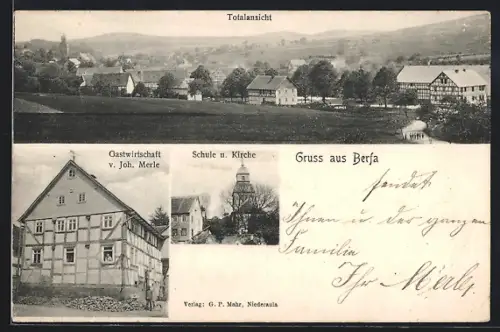 Totalansicht
Gastwirtschaft
v. Joh. Merle
Schule u. Kirche
Gruss aus Berfa
sendet
Ihnen u. der ganzen
Familie
Ihr Merle
Verlag: G. P. Mohr, Niederaula